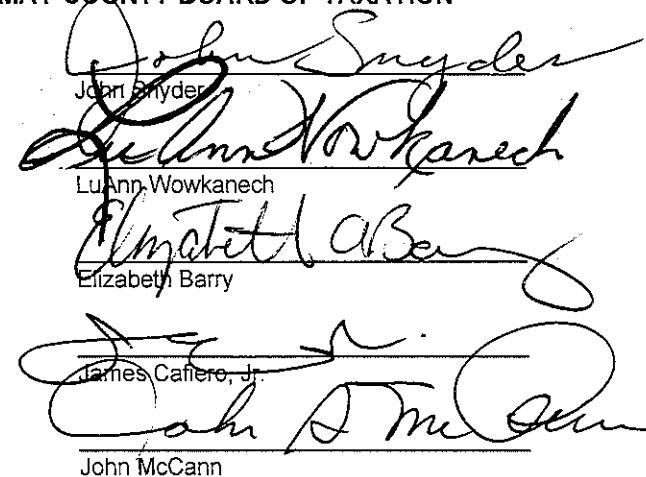 MAY COUNTY BOARD OF TAXATION
John Snyder
John Snyder
LuAnn Wowkanech
LuAnn Wowkanech
Elizabeth A Barry
Elizabeth Barry
James Cafiero, Jr.
John S McCann
John McCann